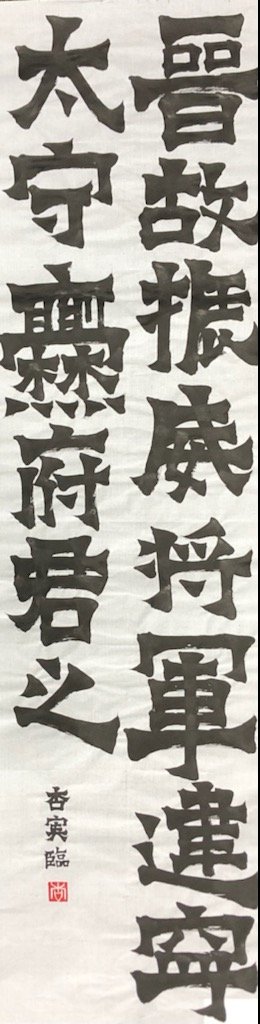 晉故振威将軍建寧
太守爨府君之
杏実臨